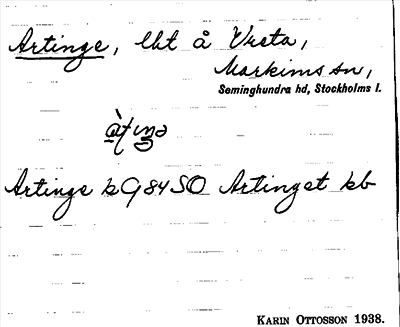 Artinge, lht å Vreta,
Markims sn,
Seminghundra hd, Stockholms l.
Artinge k G 84 SO Artinget kb
KARIN OTTOSSON 1938.